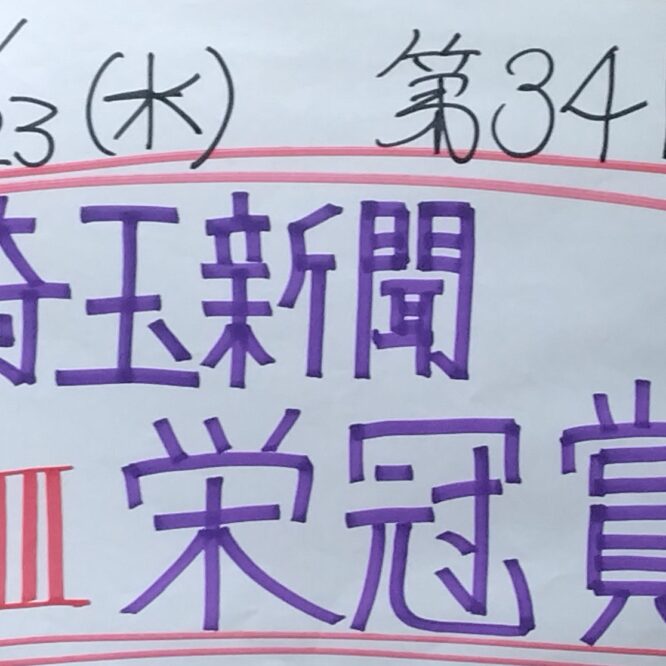 23(水) 第34
埼玉新聞
III 栄冠賞